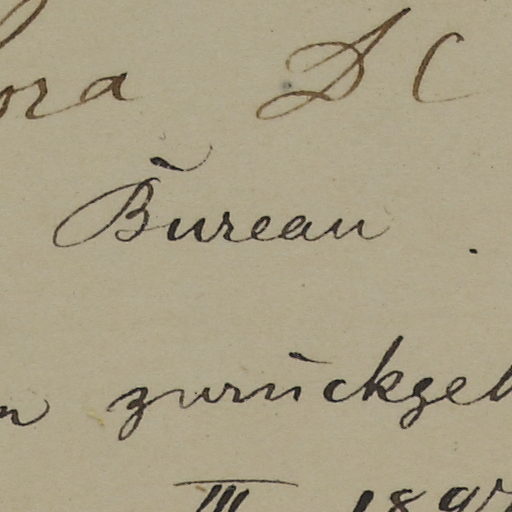 ora D C
Bureau .
zurückgel
III 189